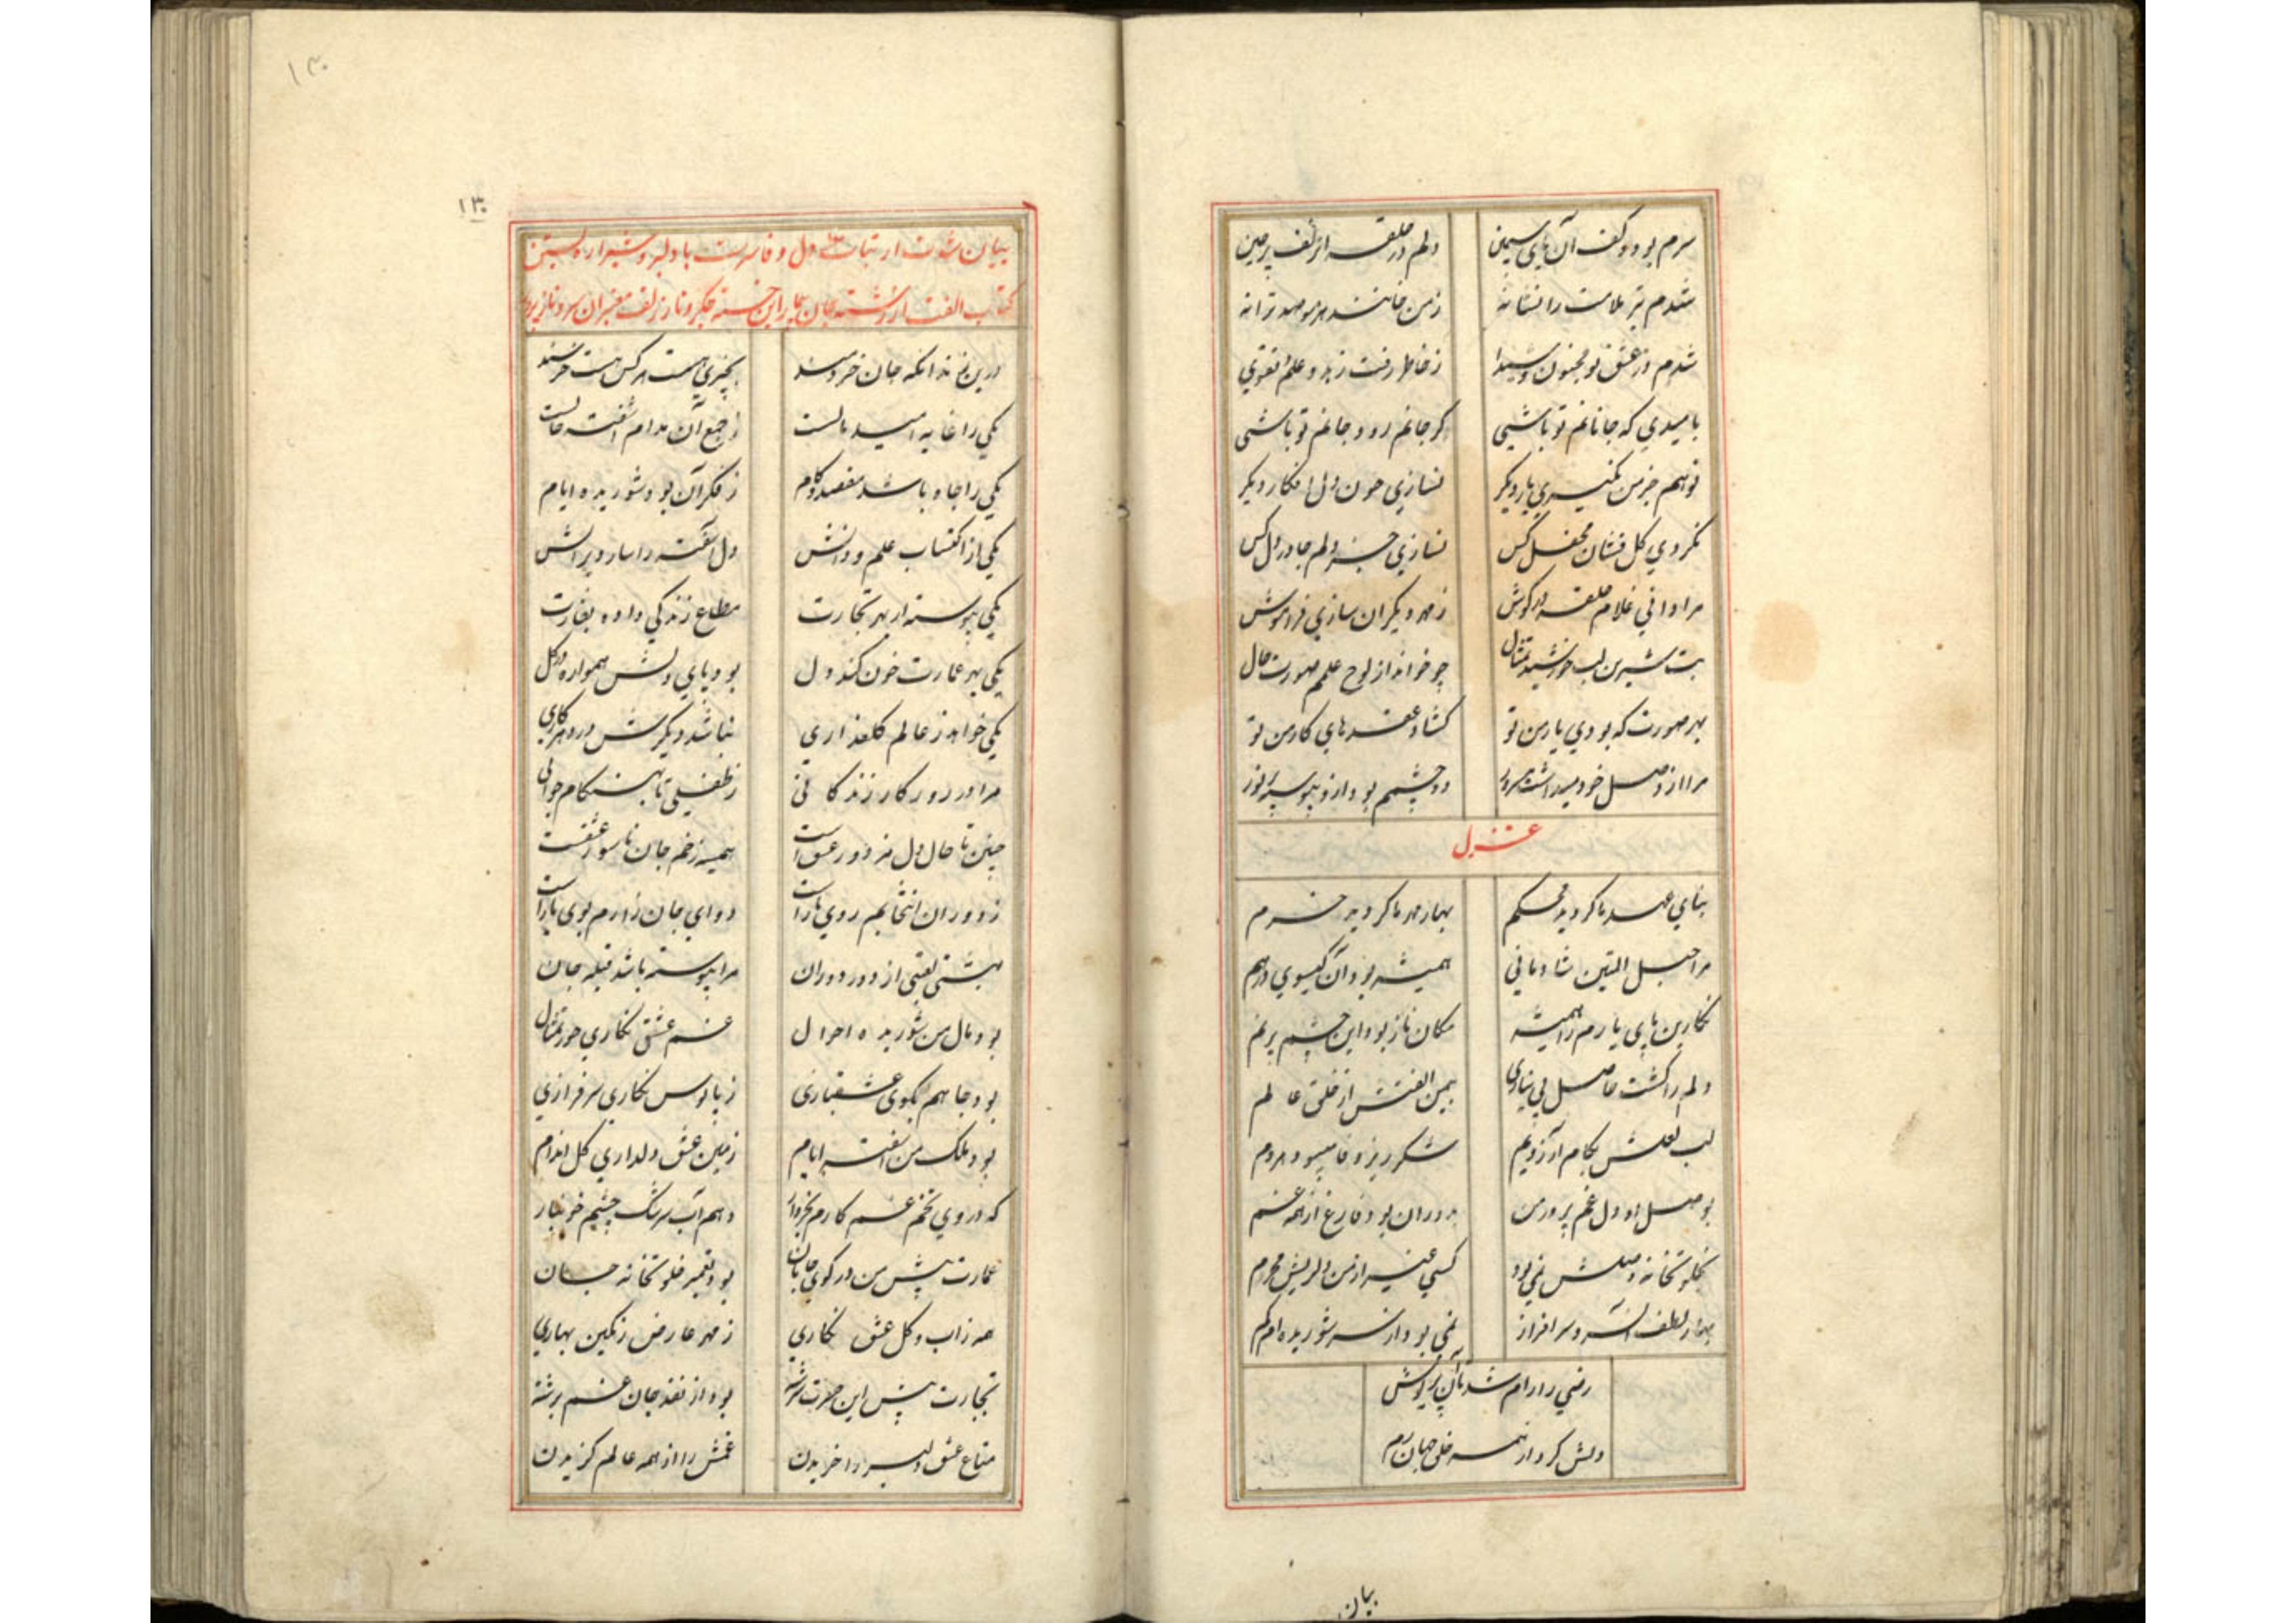 سرم بود و کف آن پای سیمین دلم در حلقه از زلف پرچین
شدم تیر ملامت را نشانه زمن خوانند هر مو صد ترانه
شدم در عشق تو مجنون و شیدا ز خاطر رفت زهد و علم و تقوی
بامیدی که جانانم تو باشی گر جانم رود جانم تو باشی
تو هم جز من نگیری یار دیگر نسازی خون دل افکار دیگر
نگردی گل فشان محفل کس نسازی جز دلم جا در دل کس
مرا دانی غلام حلقه در گوش ز مهر دیگران سازی فراموش
بت شیرین لب خورشید تمثال چو خواند از لوح علمم صورت حال
بهر صورت که بودی یار من تو گشاد عقدهای کار من تو
مرا از وصل خود میداشت مسرور دو چشمم بود از و پیوسته پر نور
غزل
بنای عهد ما گردید محکم بهار مهر ما گردید خرم
مرا حبل المتین شادمانی همیشه بود آن گیسوی درهم
نگارین پای یارم را همیشه مکان ناز بود این چشم پر نم
دلم را گشت حاصل بی نیازی بیمن الفتش از خلق عالم
لب لعلش بکام آرزویم شکر ریز وفا میبود هر دم
بوصل او دل غم پرور من بدوران بود فارغ از همه غم
بخلوتخانه وصلش نمی بود کسی غیر از من دلریش محرم
بهار لطف سرافراز نمی بود از سر شوریده ام کم
رضی را رام شد تا آن پریوش
دلش کرد از همه خلق جهان رم
بیان
١٣٠
١٣٠
بیان شدت ارتباط دل وفا سرشت با دلبر و شیرازه بستن
کتاب الفت از رشته جان بیمار این خسته جگر و تار زلف عنبران سرو ناز پرور
درین نه آنکه جان خردمند بچیزی هست هر کس هست خرسند
یکی را غایه امید مالست ز جمع آن مدام آشفته حالست
یکی را جاه باشد مقصد و کام ز فکر آن بود شوریده ایام
یکی از اکتساب علم و دانش دل آشفته را
یکی پیوسته از بهر تجارت متاع زندگی داده بغارت
یکی بهر عمارت خون کند دل بود پای دلش همواره در گل
یکی خواهد ز عالم گلعذاری نباشد دیگرش در دهر کاری
مرا در روزگار زندگانی ز طفلی تا بهنگام جوانی
چنین تا حال دل مزدور عشق است همیشه زخم جان ناسور عشقست
ز دوران انتخابم روی یار است دوای جان زارم بوی یار است
بهشتی لعبتی از دور دوران مرا پیوسته باشد قبله جان
بود مال من شوریده احوال غم عشق نگاری حور تمثال
بود جاهم بکوی عشقبازی ز پابوس نگاری سرفرازی
بود ملک من آشفته ایام زمین عشق دلداری گل اندام
که در وی تخم غم کارم دهم آب سرشک چشم خونبار
عمارت پیش من در کوی جانان بود تعمیر خلوتخانه جان
ز آب و گل عشق نگاری ز مهر عارض رنگین بهاری
تجارت پیش این بود از نقد جان غم برشته
متاع عشق دلبر را خریدن غمش را از همه عالم گزیدن